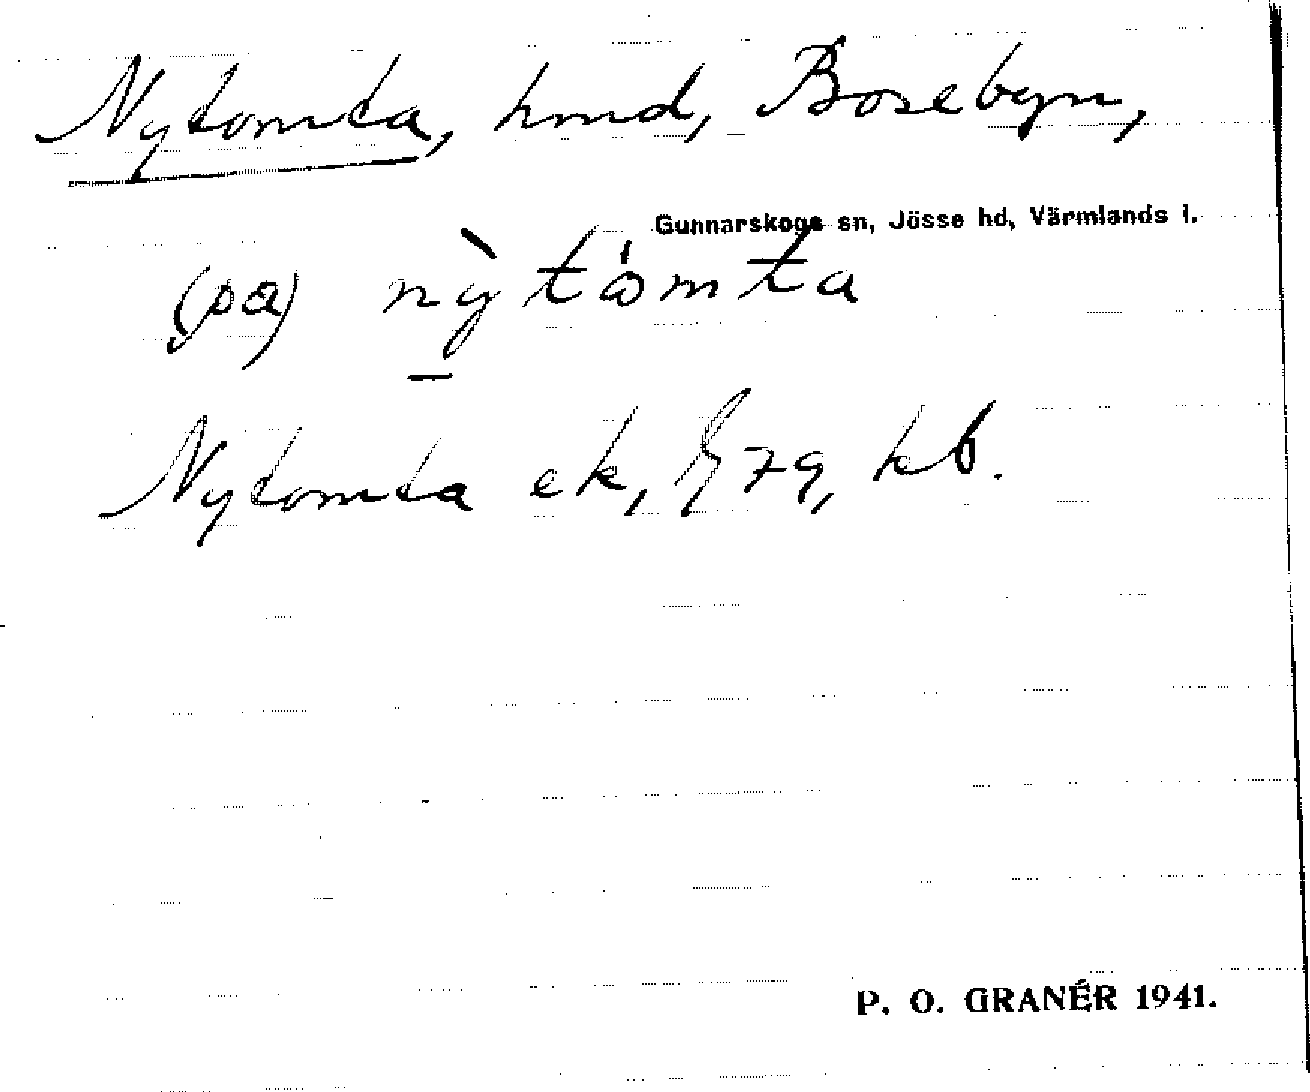 Nytomta, hmd, Bosebyn,
Gunnarskogs sn, Jösse hd, Värmlands l.
(pa) nỳtómta
Nytomta ek, kb.
P. O. GRANÉR 1941.